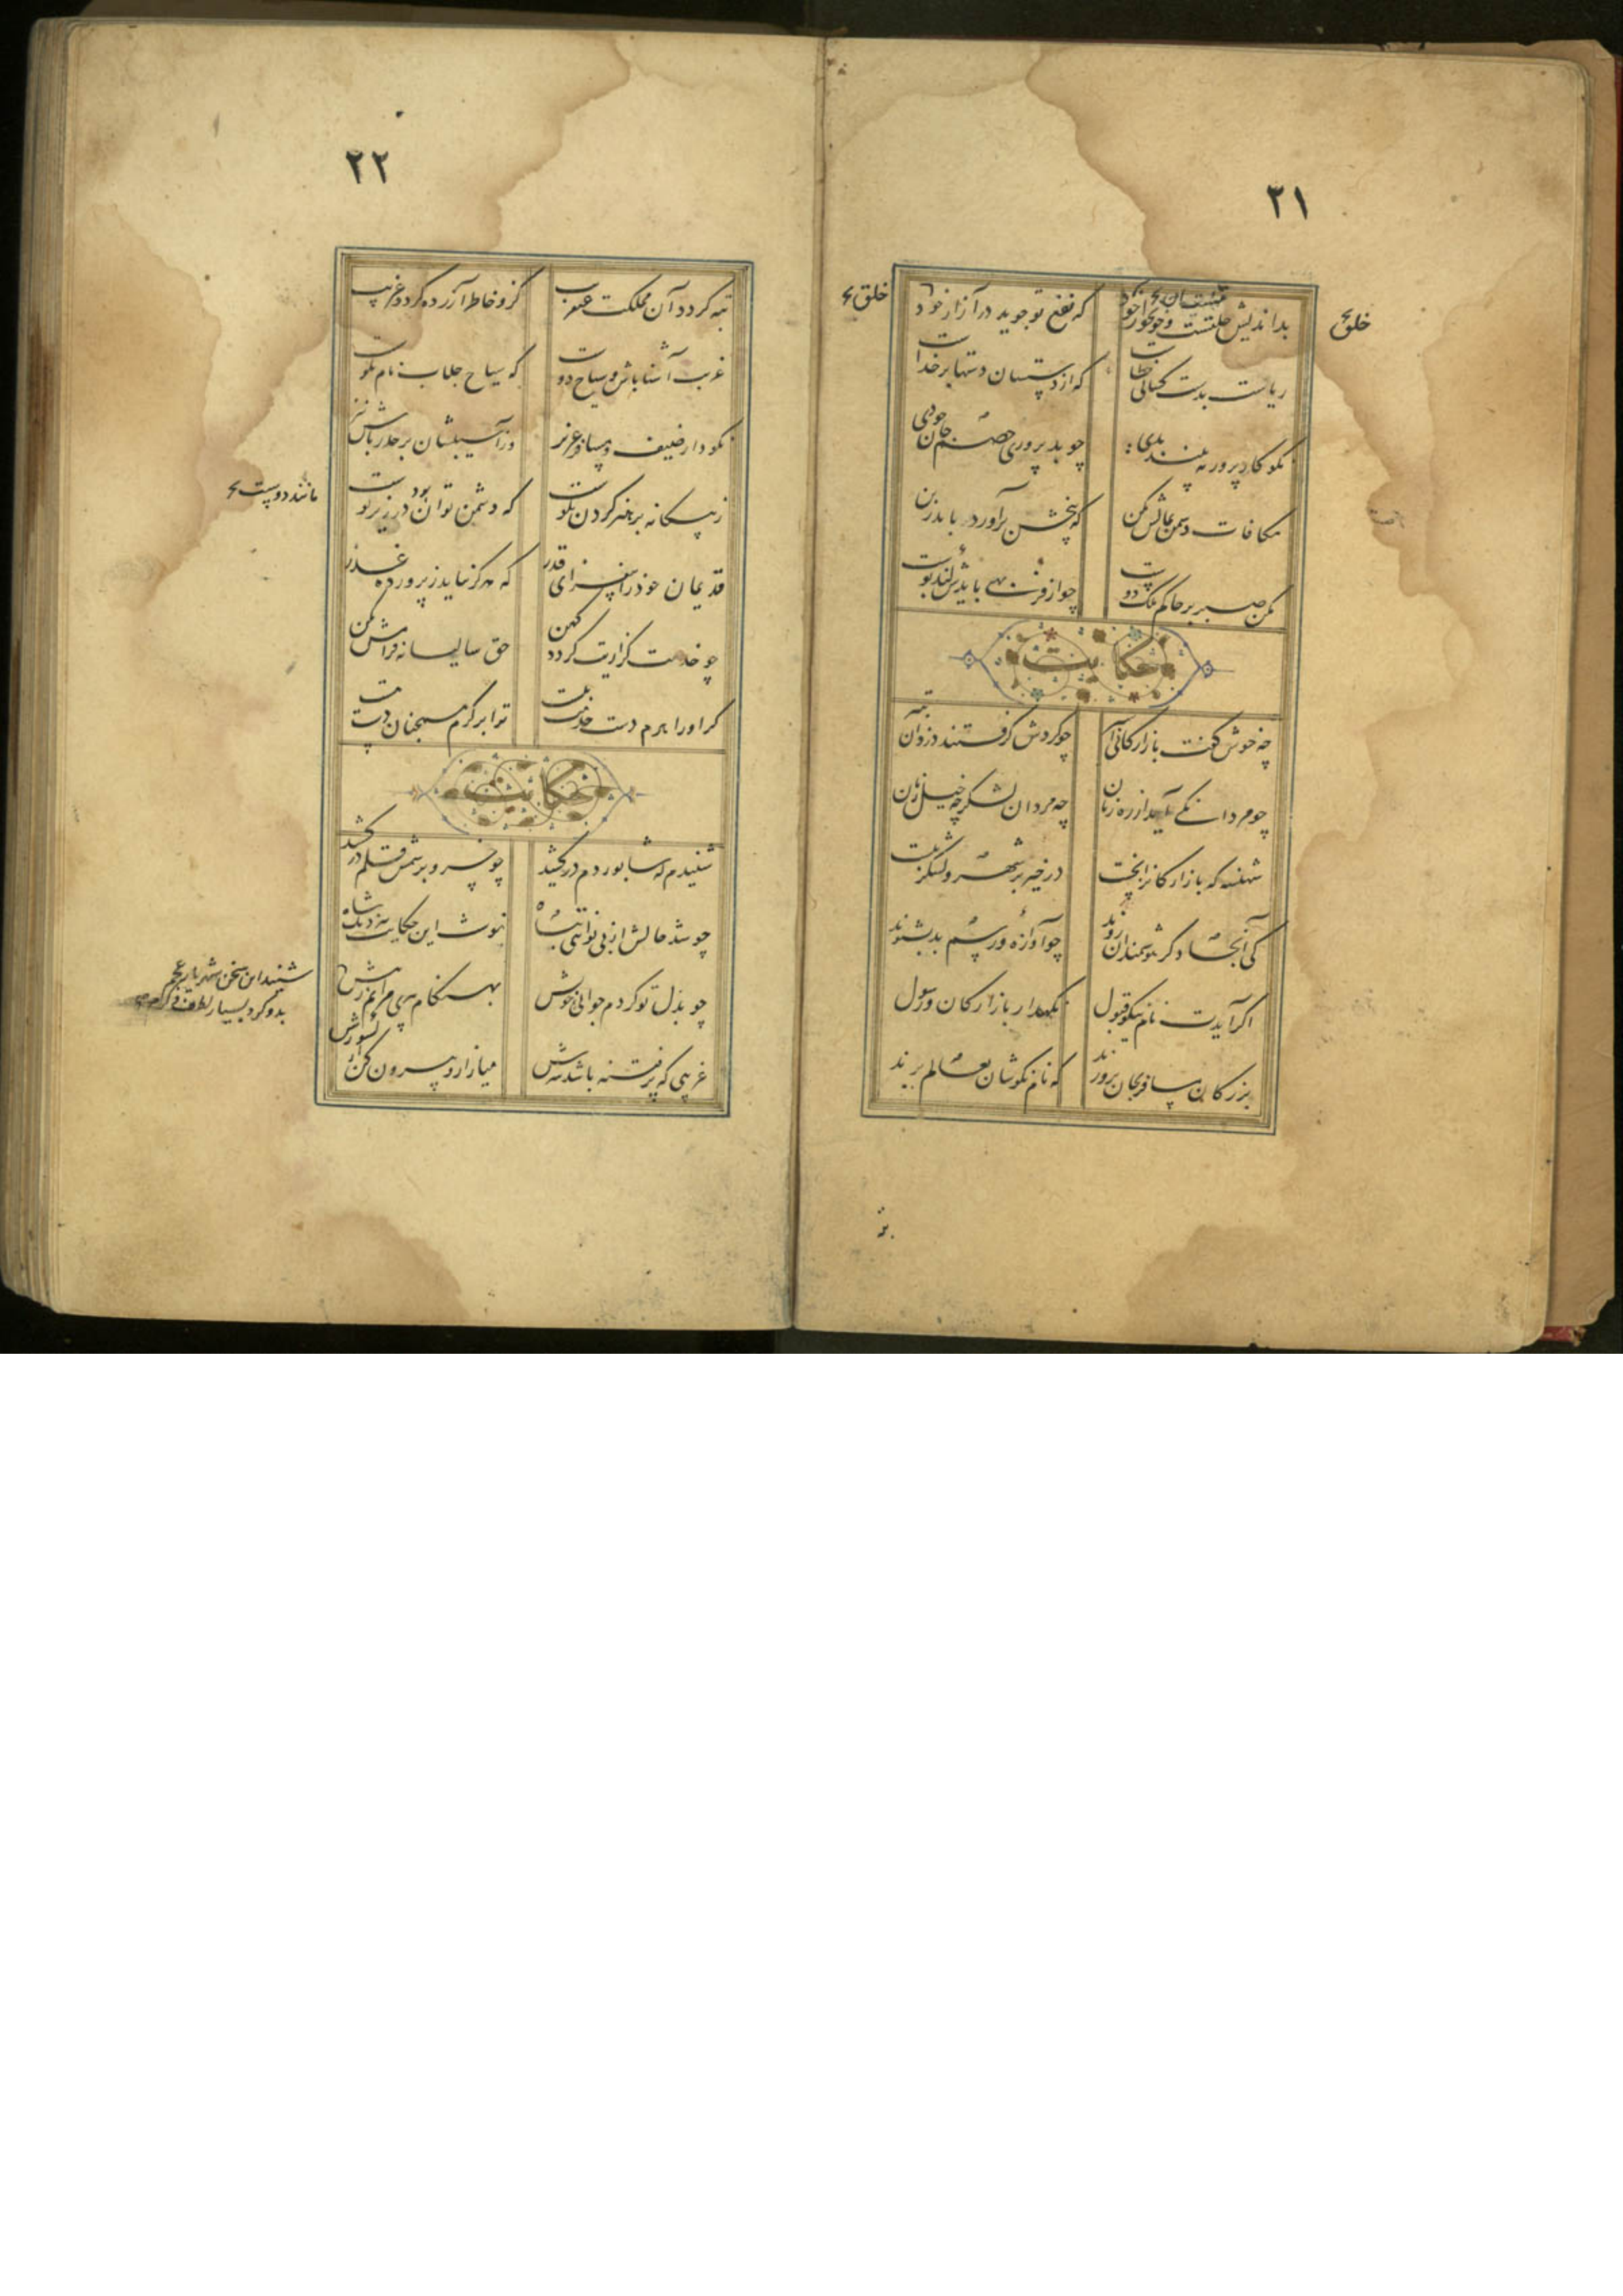 ۲۱
بداندیش خلقست و خونخوار خود که نفع تو جوید در آزار خود
خلق
خلق
ریاست بدست کسانی خطاست که از دستشان دستها بر خداست
نکو کار پرور نه بیند بدی چو بد پروری خصم جان خودی
مکافات دشمن بمالش مکن که بیخش برآورد باید ز بن
مکن صبر بر حاکم ملک دوست چو از فربهی بایدش کند پوست
حکایت
چه خوش گفت بازارگانی اسیر چو گردش گرفتند دزدان بتیر
چو مردانگی آید از ره زنان چه مردان لشکر چه خیل زنان
شهنشه که بازارگانرا بخست در خیر بر شهر و لشکر ببست
کی آنجا دگر هوشمندان روند چو آوازه رسم بد بشنوند
اگر آیدت نام نیکو قبول نگهدار بازارگان و رسول
بزرگان مسافر بجان پرورند که نام نکوشان بعالم برند
۲۲
تبه گردد آن مملکت عنقریب کزو خاطر آزرده گردد غریب
غریب آشنا باش و سیاح دوست که سیاح جلاب نام نکوست
نکو دار ضیف و مسافر عزیز وز آسیبشان بر حذر باش نیز
ز بیگانه پرهیز کردن نکوست که دشمن توان بود در زی دوست
مانند دوست
قدیمان خود را بیفزای قدر که هرگز نیاید ز پرورده غدر
چو خدمت گزاریت گردد کهن حق سالیانش فرامش مکن
گر اورا هرم دست خدمت ببست ترا بر کرم همچنان دست هست
حکایت
شنیدم که شاپور دم درکشید چو خسرو برسمش قلم درکشید
چو شد حالش از بی نوائی تباه نبشت این حکایت بنزدیک شاه
چو بذل تو کردم جوانی خویش بهنگام پیری مرانم ز پیش
شنید این سخن شهریار عجم
بدو کرد بسیار لطف و کرم
غریبی که پر فتنه باشد سرش میازار و بیرون کن از کشورش